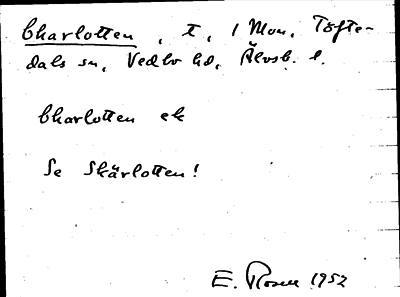 Charlotten, t, 1 Mon, Töfte-
dals sn, Vedbo hd, Älvsb. l.
Charlotten ek
Se Skärlotten!
E. Rosell 1952